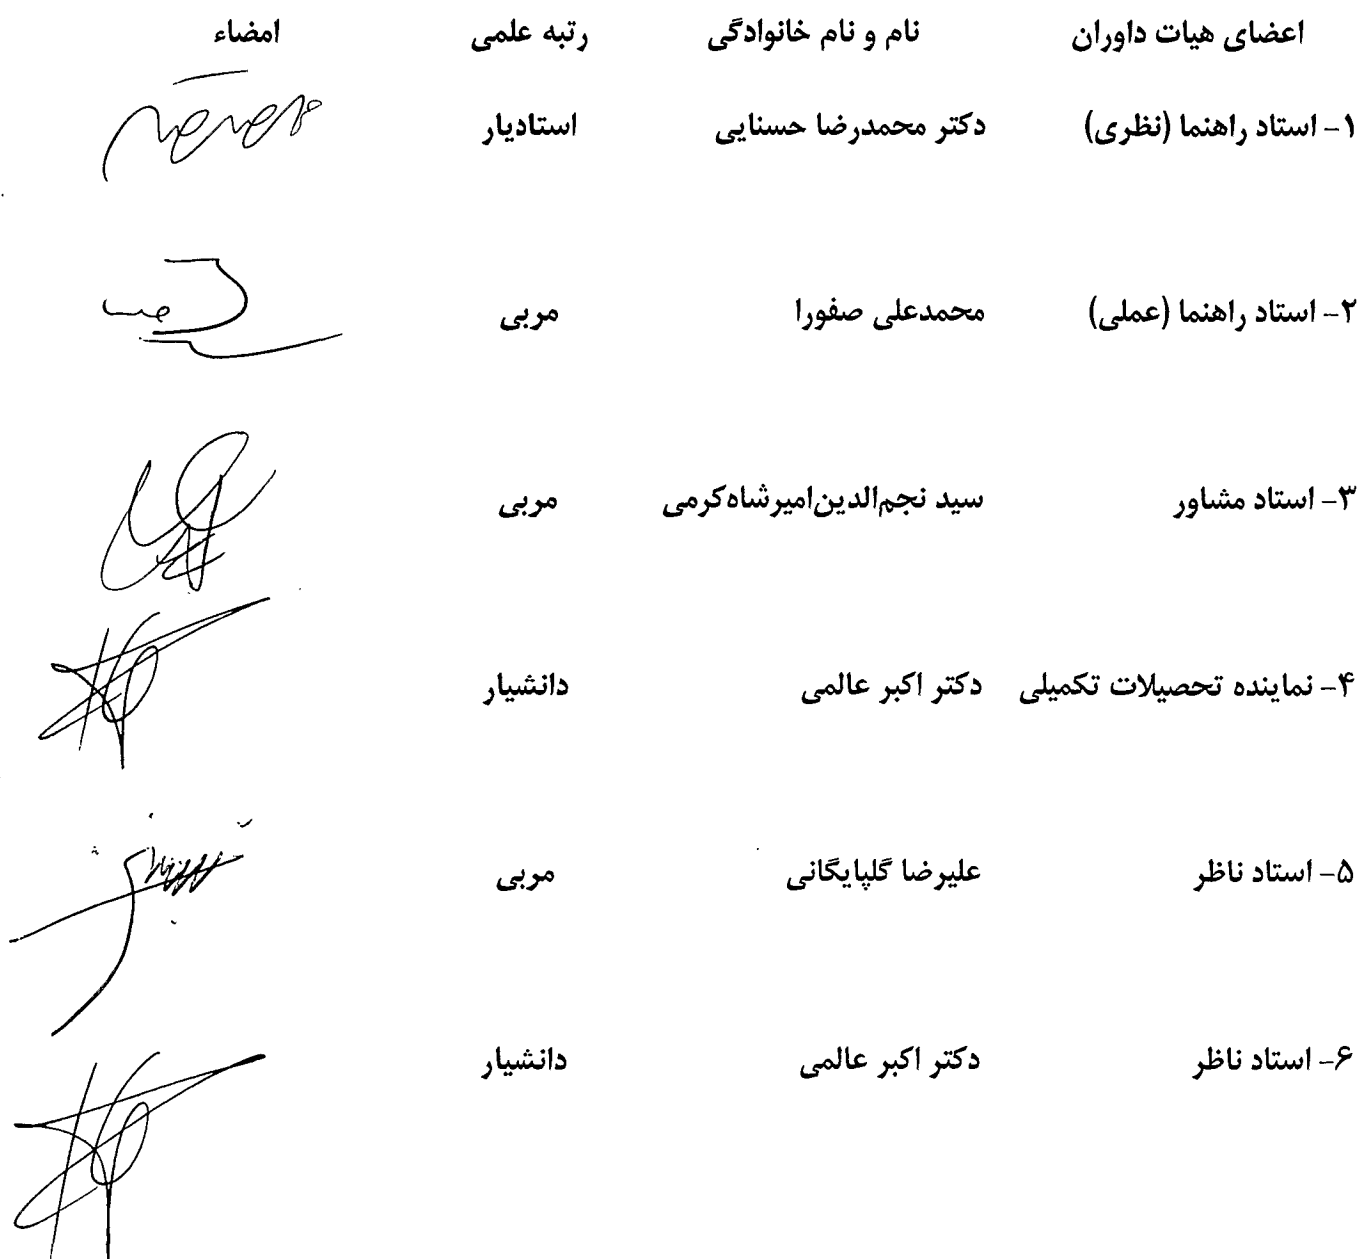 اعضای هیات داوران نام و نام خانوادگی رتبه علمی امضاء
۱- استاد راهنما (نظری) دکتر محمدرضا حسنایی استادیار
۲- استاد راهنما (عملی) محمدعلی صفورا مربی
۳- استاد مشاور سید نجم‌الدین‌امیرشاه‌کرمی مربی
۴- نماینده تحصیلات تکمیلی دکتر اکبر عالمی دانشیار
۵- استاد ناظر علیرضا گلپایگانی مربی
۶- استاد ناظر دکتر اکبر عالمی دانشیار